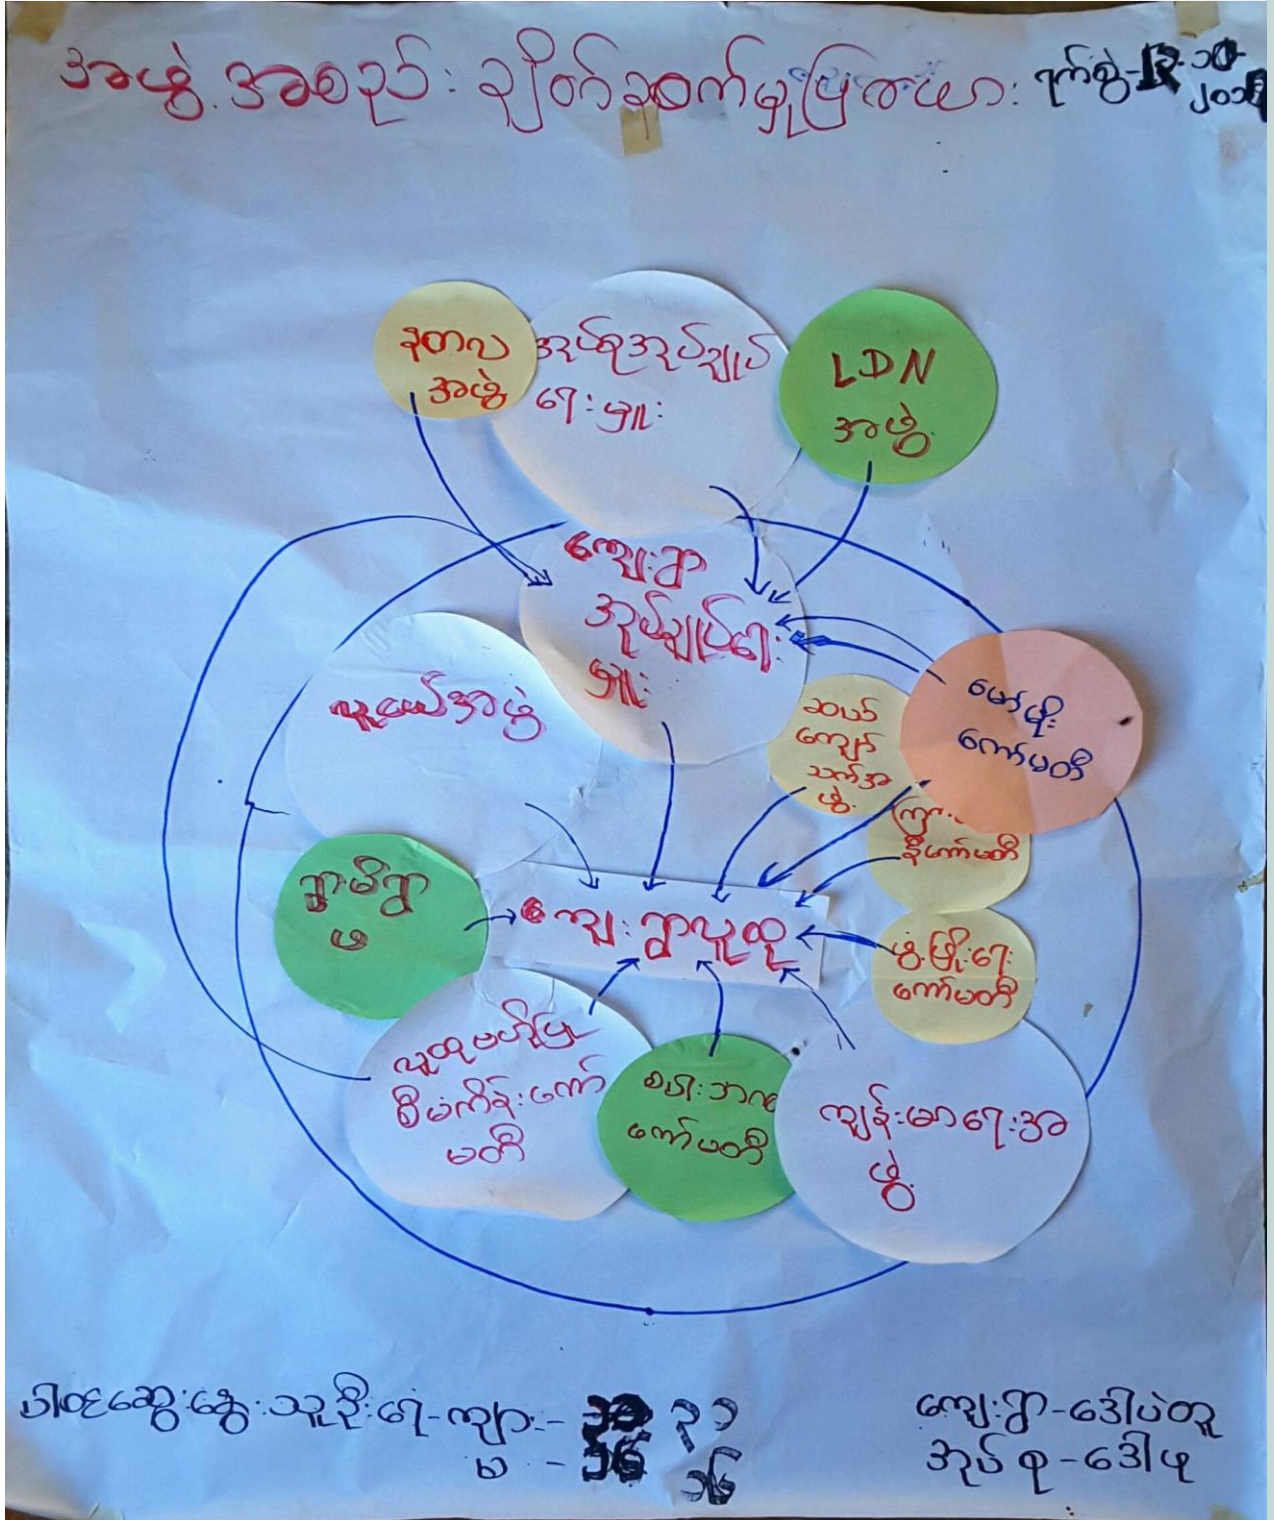 အဖွဲ့အစည်း ချိတ်ဆက်မှုပြကားး ရက်စွဲ-
နတလ
အဖွဲ့
အုပ်စုအုပ်ချုပ်
ရေးမှူး
LDN
အဖွဲ့
ကျေးရွာ
အုပ်ချုပ်ရေး
မှူး
လူငယ်အဖွဲ့
ဆယ်
ကျော်
သက်အ
ဖွဲ့
မော်မိုး
ကော်မတီ
နီကော်မတီ
ရွာမိရွာ
ဖ
ကျေးရွာလူထု
ဖွံ့ဖြိုးရေး
ကော်မတီ
လူထုဗဟိုပြု
စီမံကိန်းကော်
မတီ
ကော်မတီ
ကျန်းမာရေးအ
ဖွဲ့
ပါဝင်ဆွေးနွေးသူဦးရေ-ကျား - ၃၁
မ - ၁၆
ကျေးရွာ-ဒေါပဲတူ
အုပ်စု-ဒေါဖု